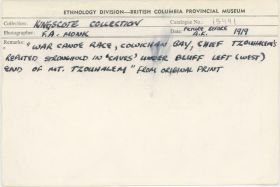 ETHNOLOGY DIVISION—BRITISH COLUMBIA PROVINCIAL MUSEUM
Collection: KINGSCOTE COLLECTION Catalogue No.: 15441
Photographer: F.A. MONK Date: BEFORE 1919
Remarks: "WAR CANOE RACE, COWICHAN BAY, CHIEF TZOUHALEM'S
REPUTED STRONGHOLD IN 'CAVES' UNDER BLUFF LEFT (WEST)
END OF MT. TZOUHALEM" FROM ORIGINAL PRINT